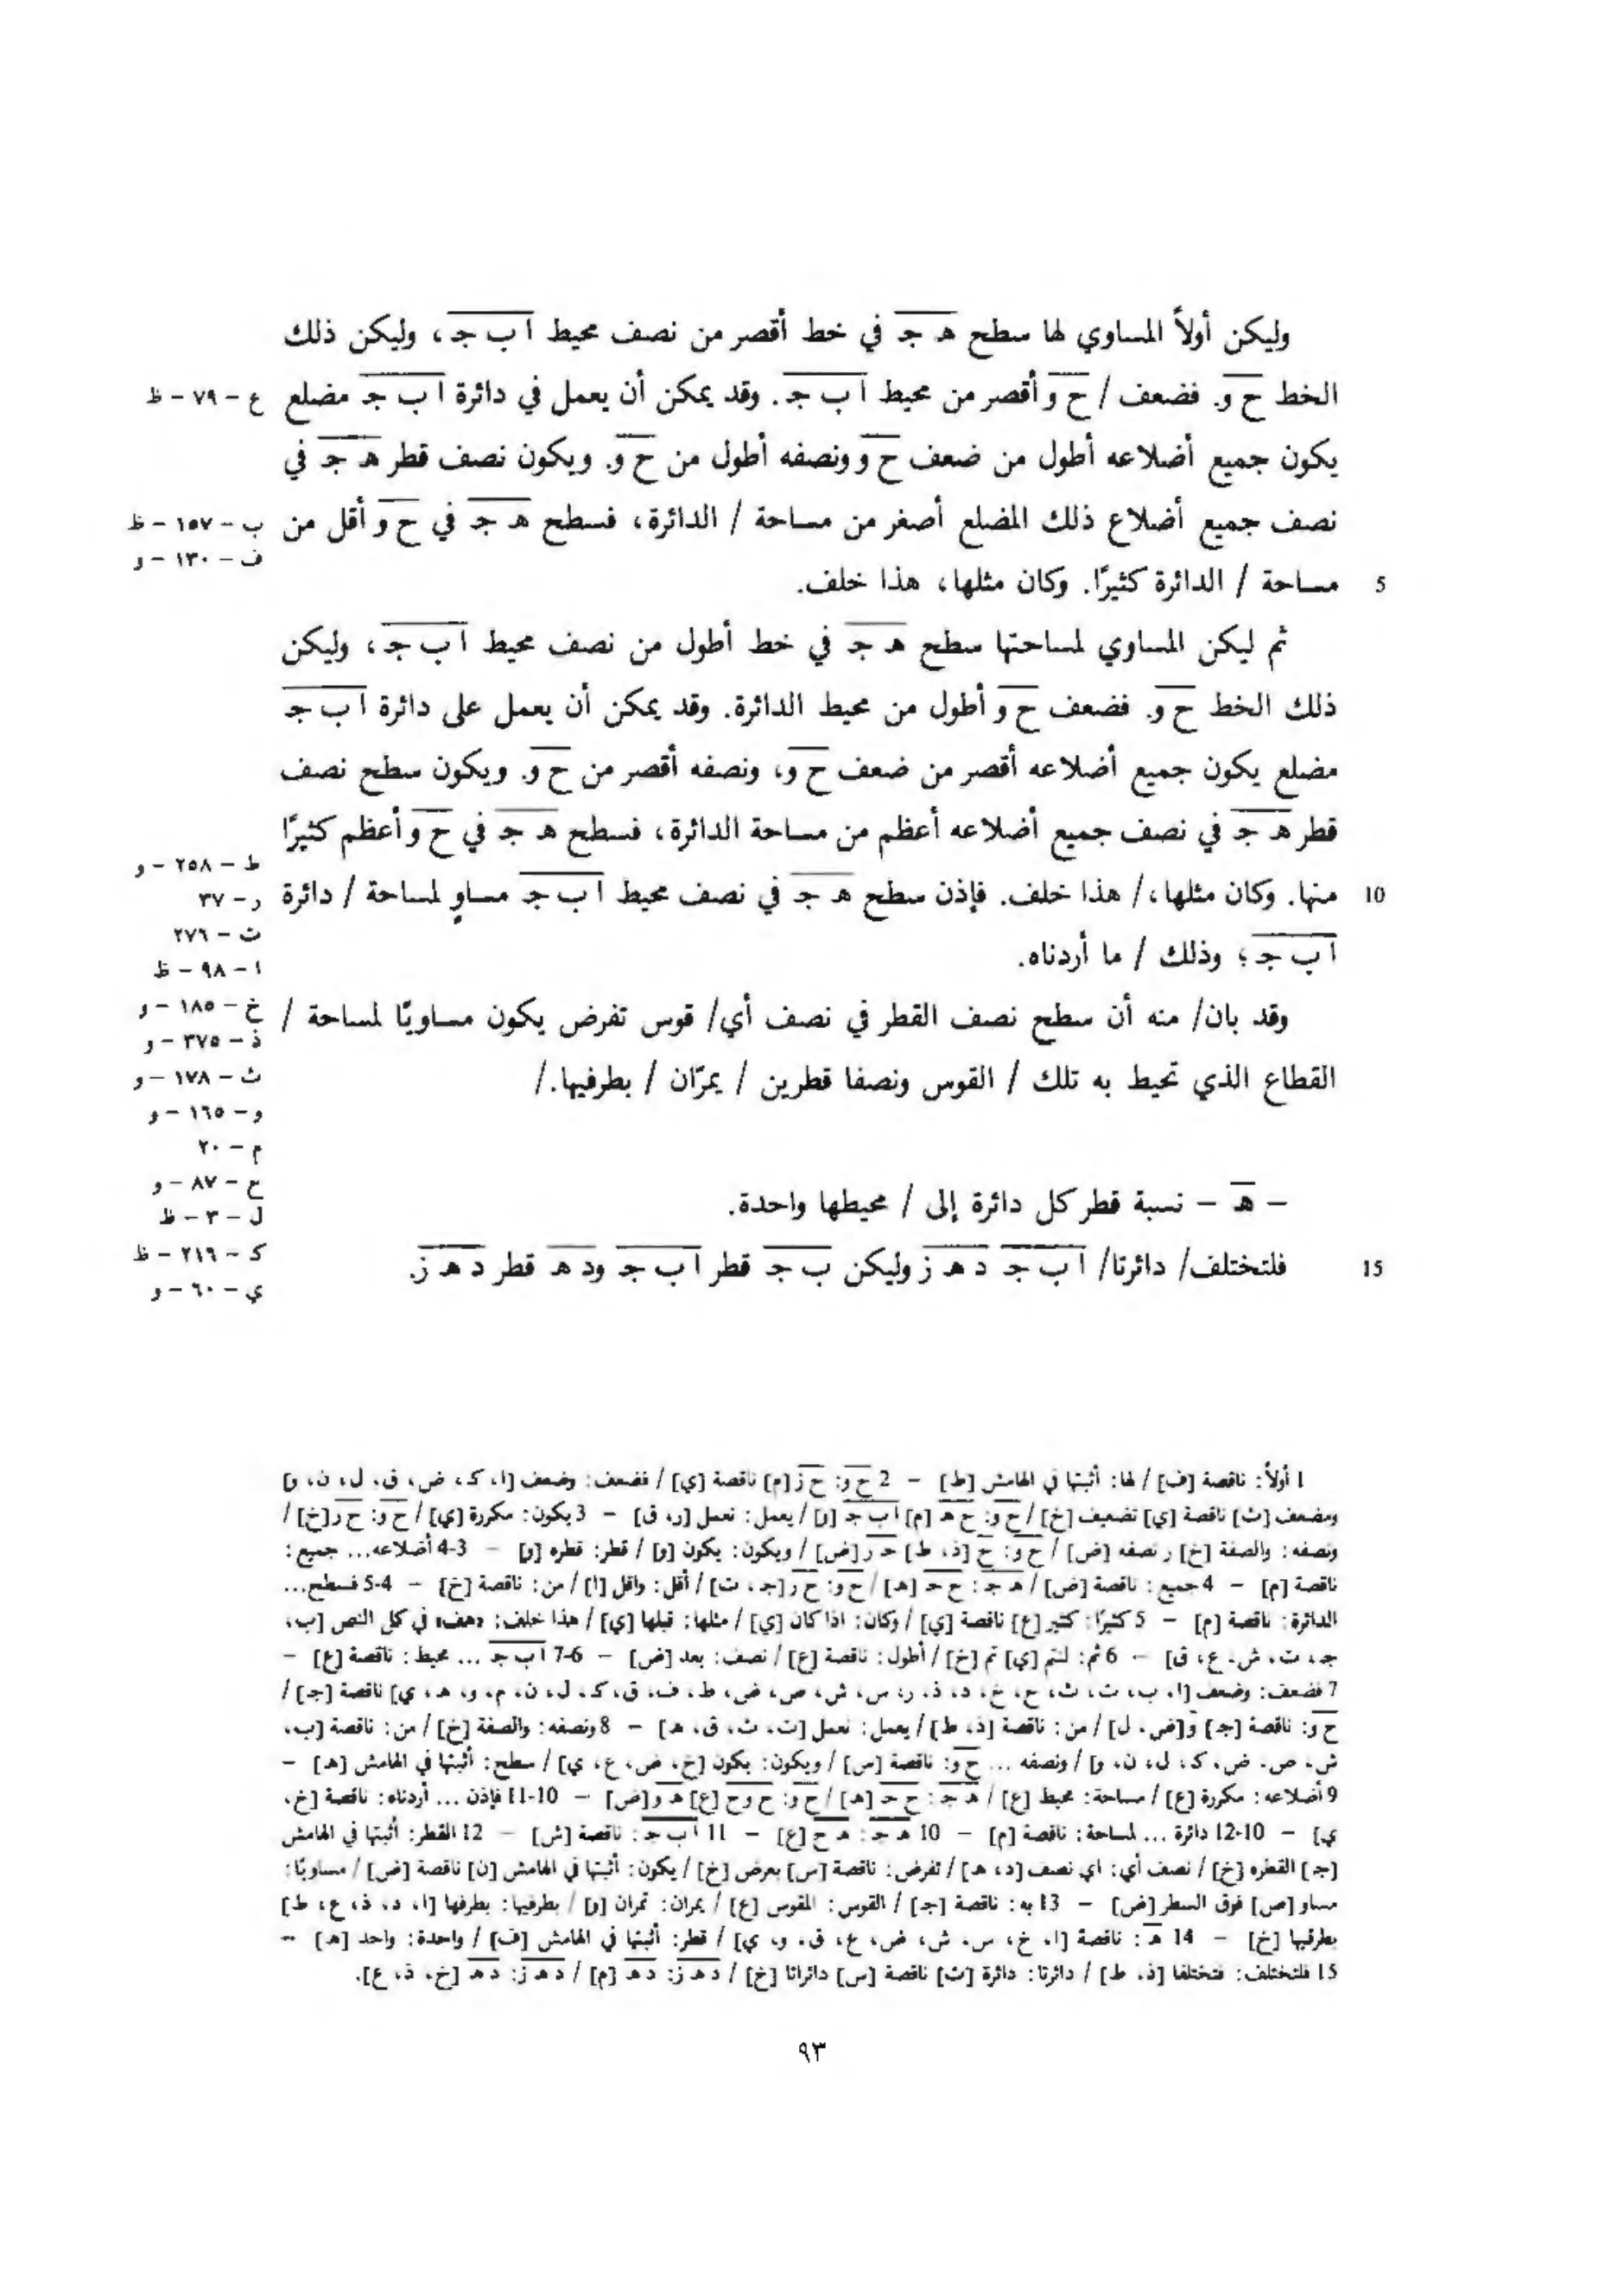 وليكن أولاً المساوي لها سطح هـ جـ في خط أقصر من نصف محيط ا ب جـ، وليكن ذلك
الخط ح و. فضعف / ح و أقصر من محيط ا ب جـ. وقد يمكن أن يعمل في دائرة ا ب جـ مضلع
ع - ٧٩ - ظ
يكون جميع أضلاعه أطول من ضعف ح و ونصفه أطول من ح و. ويكون نصف قطر هـ جـ في
نصف جميع أضلاع ذلك المضلع أصغر من مساحة / الدائرة، فسطح هـ جـ في ح و أقل من
ب - ١٥٧ - ظ
ف - ١٣٠ - و
5 مساحة / الدائرة كثيرًا. وكان مثلها، هذا خلف.
ثم ليكن المساوي لمساحتها سطح هـ جـ في خط أطول من نصف محيط ا ب جـ، وليكن
ذلك الخط ح و. فضعف ح و أطول من محيط الدائرة. وقد يمكن أن يعمل على دائرة ا ب جـ
مضلع يكون جميع أضلاعه أقصر من ضعف ح و، ونصفه أقصر من ح و. ويكون سطح نصف
قطر هـ جـ في نصف جميع أضلاعه أعظم من مساحة الدائرة، فسطح هـ جـ في ح و أعظم كثيرًا
ط - ٢٥٨ - و
10 منها. وكان مثلها،/ هذا خلف. فإذن سطح هـ جـ في نصف محيط ا ب جـ مساوٍ لمساحة / دائرة
ر - ٣٧
ت - ٢٧٦
ا ب جـ؛ وذلك / ما أردناه.
ا - ٩٨ - ظ
وقد بان/ منه أن سطح نصف القطر في نصف أي/ قوس تفرض يكون مساويًا لمساحة /
خ - ١٨٥ - و
ذ - ٣٧٥ - و
القطاع الذي تحيط به تلك / القوس ونصفا قطرين / يمرّان / بطرفيها./
ث - ١٧٨ - و
و - ١٦٥ - و
م - ٢٠
ح - ٨٧ - و
- هـ - نسبة قطر كل دائرة إلى / محيطها واحدة.
ل - ٣ - ظ
15 فلتختلف/ دائرتا/ ا ب جـ د هـ ز وليكن ب جـ قطر ا ب جـ ود هـ قطر د هـ ز.
كـ - ٢١٦ - ظ
ي - ٦٠ - و
1 أولاً: ناقصة [ف] / لها: أثبتها في الهامش [ط] - 2 ح و: ح ز [م] ناقصة [ي] / فضعف: وضعف [ا، كـ، ض، ق، ل، ن، و]
ومضعف [ث] ناقصة [ي] تضعيف [خ] / ح و: ح هـ [م] ا ب جـ [و] / يعمل: نعمل [ر، ق] - 3 يكون: مكررة [ي] / ح و: ح ر [خ] /
ونصفه: والصفة [خ] ر نصفه [ض] / ح و: ح [ذ، ط] حـ ر [ض] / ويكون: يكون [و] / قطر: قطره [و] - 3-4 أضلاعه... جميع:
ناقصة [م] - 4 جميع: ناقصة [ض] / هـ جـ: ح حـ [هـ] / ح و: ح ر [جـ، ت] / أقل: واقل [ا] / من: ناقصة [خ] - 4-5 فسطح...
الدائرة: ناقصة [م] - 5 كثيرًا: كثير [ع] ناقصة [ي] / وكان: اذا كان [ي] / مثلها: قبلها [ي] / هذا خلف: «هف» في كل النص [ب،
جـ، ت، ش، ع، ق] - 6 ثم: لنتم [ي] تم [خ] / أطول: ناقصة [ع] / نصف: بعد [ض] - 6-7 ا ب جـ ... محيط: ناقصة [ع] -
7 فضعف: وضعف [ا، ب، ت، ث، ح، خ، د، ذ، ر، س، ش، ص، ض، ط، ف، ق، كـ، ل، ن، م، و، هـ، ي] ناقصة [جـ] /
ح و: ناقصة [جـ] و [ض، ل] / من: ناقصة [ذ، ط] / يعمل: نعمل [ت، ث، ق، هـ] - 8 ونصفه: والصفة [خ] / من: ناقصة [ب،
ش، ص، ض، كـ، ل، ن، و] / ونصفه ... ح و: ناقصة [س] / ويكون: يكون [خ، ض، ع، ي] / سطح: أثبتها في الهامش [هـ] -
9 أضلاعه: مكررة [ع] / مساحة: محيط [ع] / هـ جـ: ح حـ [هـ] / ح و: ح و ح [ع] هـ و [ض] - 10-11 فإذن ... أردناه: ناقصة [خ،
ي] - 10-12 دائرة ... لمساحة: ناقصة [م] - 10 هـ جـ: هـ ح [ع] - 11 ا ب جـ: ناقصة [ش] - 12 القطر: أثبتها في الهامش
[جـ] القطره [خ] / نصف أي: اي نصف [د، هـ] / تفرض: ناقصة [س] بعرض [خ] / يكون: أثبتها في الهامش [ن] ناقصة [ض] / مساويًا:
مساو [ص] فوق السطر [ض] - 13 به: ناقصة [جـ] / القوس: المقوس [ع] / يمران: تمران [و] / بطرفيها: بطرفها [ا، د، ذ، ع، ط]
بطرقيها [خ] - 14 هـ: ناقصة [ا، خ، س، ش، ض، ع، ق، و، ي] / قطر: أثبتها في الهامش [ف] / واحدة: واحد [هـ] -
15 فلتختلف: فتختلفا [ذ، ط] / دائرتا: دائرة [ت] ناقصة [س] دائراتا [خ] / د هـ ز: د هـ [م] / د هـ ز: د هـ [خ، ذ، ع].
٩٣